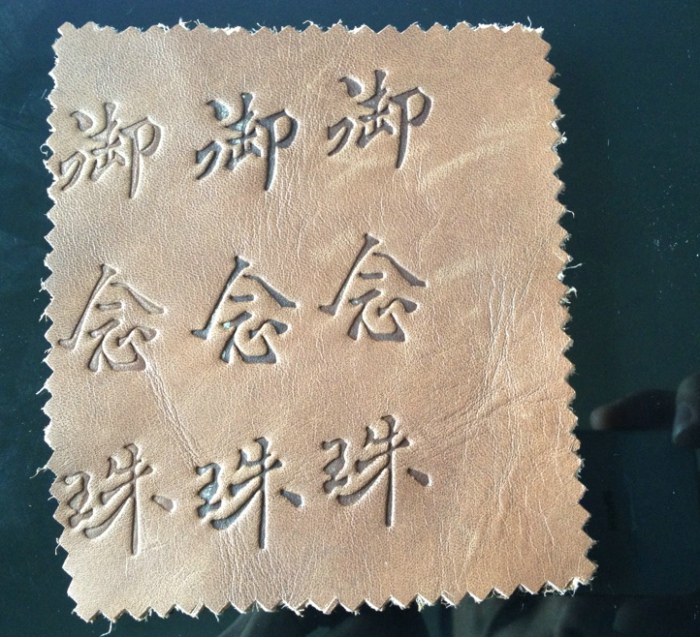 御 御 御
念 念 念
珠 珠 珠